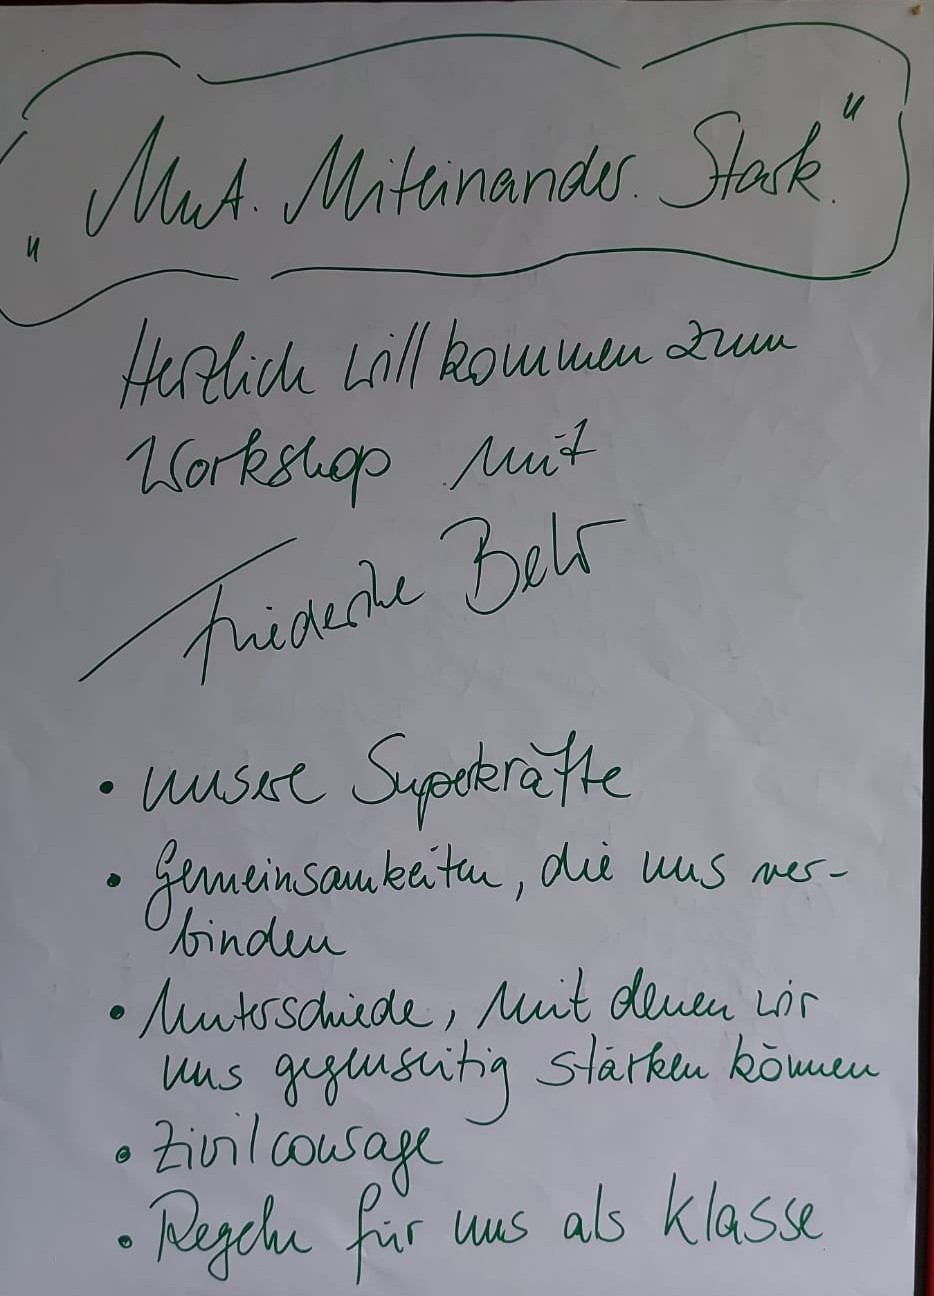 „Mut. Miteinander. Stark."
Herzlich Willkommen zum
Workshop mit
Friederike Behr
• unsere Superkräfte
• Gemeinsamkeiten, die uns ver-
binden
• Unterschiede, mit denen wir
uns gegenseitig stärken können
• Zivilcourage
• Regeln für uns als Klasse